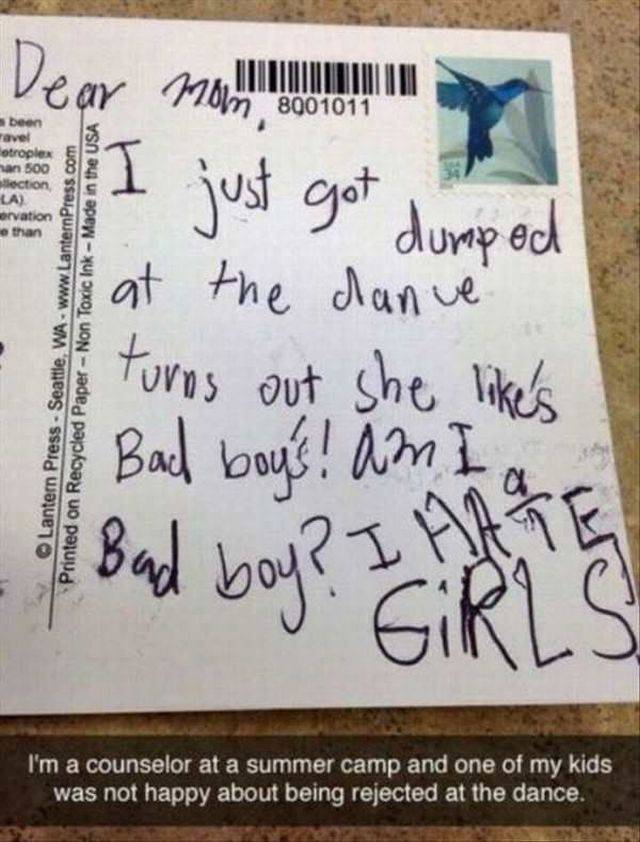 Dear mom,
8001011
s been
ravel
etroplex
han 500
llection,
LA)
ervation
e than
© Lantern Press - Seattle, WA - www.LanternPress.com
Printed on Recycled Paper – Non Toxic Ink – Made in the USA
USA
34
I just got
dumped
at the dance
turns out she like's
Bad boy's! Am I a
Bad boy? I HATE
GiRLS
I'm a counselor at a summer camp and one of my kids
was not happy about being rejected at the dance.